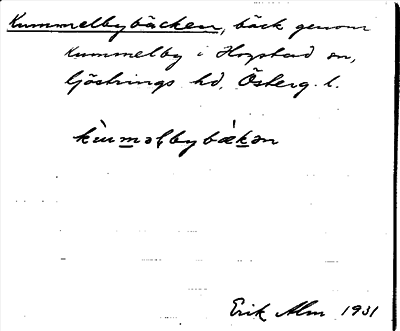 Kummelbybäcken, bäck genom
Kummelby i Hogstad sn,
Göstrings hd, Österg. l.
kùməlbybǽkən
Erik Alm 1931